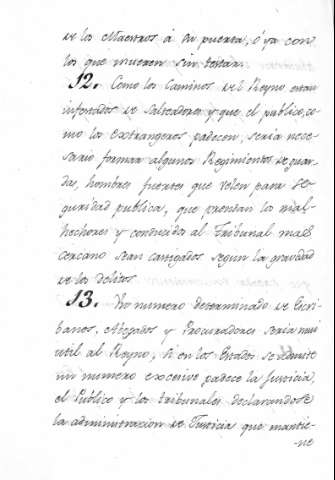 de los Maestros á su puerta, ó ya con
los que mueren sin testar.
12. Como los Caminos del Reyno estan
infestados de Salteadores y que el publico, co-
mo los extrangeros padecen, seria nece-
sario formar algunos Regimientos de guar-
das, hombres fuertes que velen para se-
guridad publica, que prendan los mal-
hechores y conducidos al Tribunal mas
cercano sean castigados segun la gravedad
de los delitos.
13. Un numero determinado de Escri-
banos, Abogados y Procuradores seria mui
util al Reyno, si en los Estados se admite
un numero excesivo padece la Justicia,
el Publico y los tribunales declarandose
la administracion de Justicia que mantie-
-ne